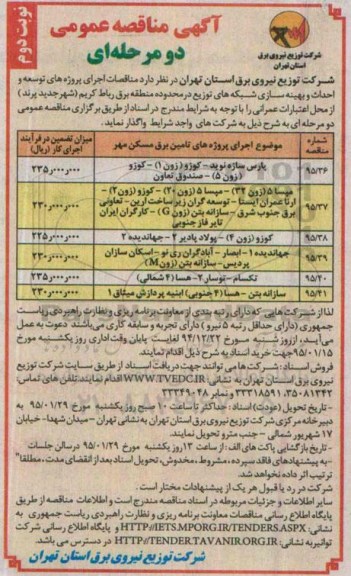 نوبت دوم
آگهی مناقصه عمومی
دو مرحله‌ای
شرکت توزیع نیروی برق
استان تهران
شرکت توزیع نیروی برق استان تهران در نظر دارد مناقصات اجرای پروژه های توسعه و
احداث و بهینه سازی شبکه های توزیع در محدوده منطقه برق رباط کریم (شهر جدید پرند)
از محل اعتبارات عمرانی را با توجه به شرایط مندرج در اسناد از طریق برگزاری مناقصه عمومی
دو مرحله ای به شرح ذیل به شرکت های واجد شرایط واگذار نماید.
شماره مناقصه
موضوع اجرای پروژه های تامین برق مسکن مهر
میزان تضمین در فرآیند ارجاع کار (ریال)
۹۵/۳۶
پارس سازه نوید - کوزو (زون ۱) - کوزو
(زون ۵) - صندوق تعاون
۲۳۵,۰۰۰,۰۰۰
۹۵/۳۷
میسا ۵ (زون ۳۲) - میسا ۵ (زون ۲۰) - کوزو (زون ۲) -
آرتا عمران ایستا - توسعه گران زیر ساخت آرین - تعاونی
برق جنوب شرق - سازانه بتن (زون G) - کارگران ایران
تایر فاز جنوبی
۲۳۰,۰۰۰,۰۰۰
۹۵/۳۸
کوزو (زون ۴) - پولاد پادیر ۲ - جهاندیده ۲
۲۲۵,۰۰۰,۰۰۰
۹۵/۳۹
جهاندیده ۱ - ابصار - آبادگران ری نو - اسکان سازان
پردیس - سازانه بتن (زون M)
۲۳۰,۰۰۰,۰۰۰
۹۵/۴۰
تکسام - توسار ۲ - هسا (۴ شمالی)
۲۳۵,۰۰۰,۰۰۰
۹۵/۴۱
سازانه بتن - هسا (۴ جنوبی) ابنیه پردازش میثاق ۱
۲۳۰,۰۰۰,۰۰۰
لذا از شرکت هایی که دارای رتبه بندی از معاونت برنامه ریزی و نظارت راهبردی ریاست
جمهوری (دارای حداقل رتبه ۵ نیرو) دارای تجربه و سابقه کاری می‌باشند دعوت به عمل
می‌آید، از روز شنبه مورخ ۹۴/۱۲/۲۲ لغایت پایان وقت اداری روز یکشنبه مورخ
۹۵/۰۱/۱۵ جهت خرید اسناد به شرح ذیل اقدام نمایند.
فروش اسناد: شرکت ها می توانند جهت دریافت اسناد از طریق سایت شرکت توزیع
نیروی برق استان تهران به نشانی: WWW.TVEDC.IR اقدام نمایند. تلفن های تماس:
۳۵۰۸۱۳۴۲، ۳۳۳۱۸۵۹۱ و نمابر ۳۳۳۴۹۰۴۸
- تاریخ تحویل (عودت) اسناد: حداکثر تا ساعت ۱۰ صبح روز یکشنبه مورخ ۹۵/۰۱/۲۹ به
دبیرخانه مرکزی شرکت توزیع نیروی برق استان تهران به نشانی تهران - میدان شهدا - خیابان
۱۷ شهریور شمالی - جنب مترو تحویل نمایند.
- تاریخ بازگشایی پاکت های الف: از ساعت ۱۳ روز یکشنبه مورخ ۹۵/۰۱/۲۹ در سالن جلسات
- به پیشنهادهای فاقد سپرده، مشروط، مخدوش، تحویل اسناد بعد از انقضای مدت، مطلقا"
ترتیب اثر داده نخواهد شد.
شرکت در رد یا قبول هر یک از پیشنهادات مختار است.
سایر اطلاعات و جزئیات مربوطه در اسناد مناقصه مندرج است و اطلاعات مناقصه از طریق
پایگاه اطلاع رسانی مناقصات معاونت برنامه ریزی و نظارت راهبردی ریاست جمهوری به
نشانی: HTTP//IETS.MPORG.IR/TENDERS.ASPX و پایگاه اطلاع رسانی شرکت
توانیر به نشانی: HTTP//TENDER.TAVANIR.ORG.IR در دسترس می باشد.
شرکت توزیع نیروی برق استان تهران